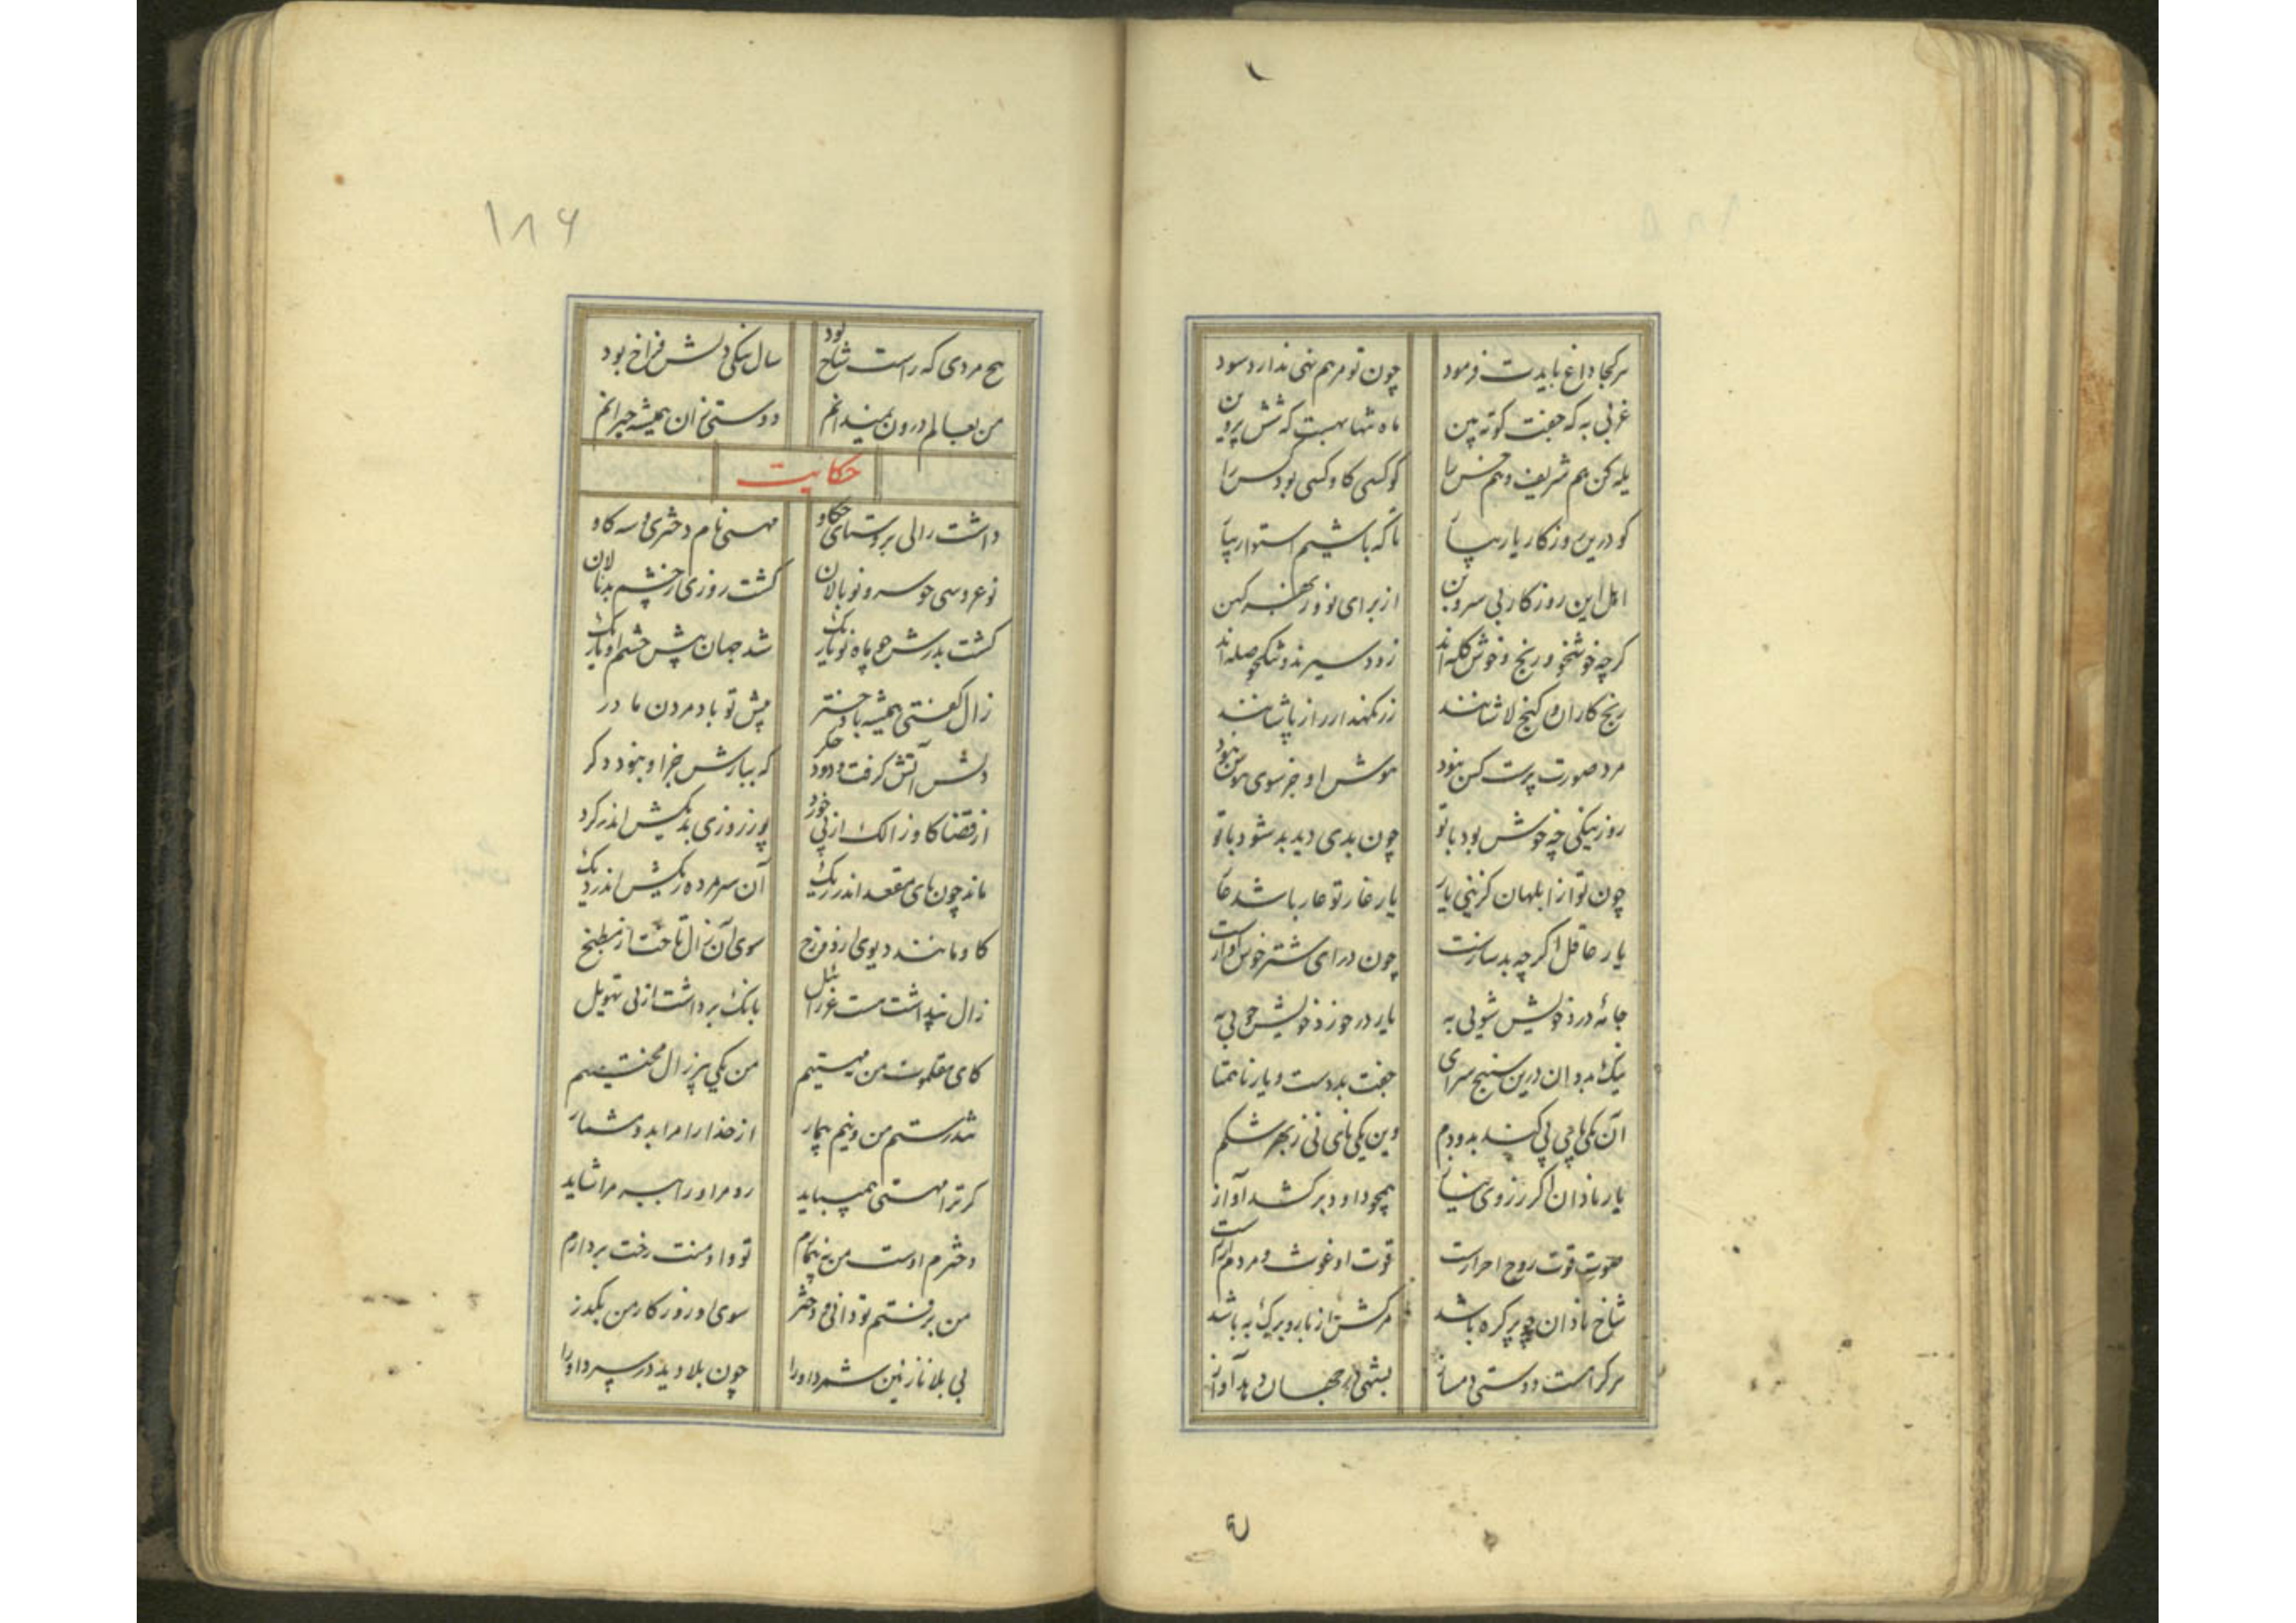 هر کجا داغ بایدت فرمود چون تو مرهم نهی ندارد سود
غربی به که جفت کوته بین ماه تنها بهست که شش پروین
یله کن هم شریف و هم خس را کو کسی کاو کسی بود کس را
کو درین روزکار یار بپا تا که باشیم استوار بپا
اهل این روزکار بی سر و بن از برای نو و ز بهر کهن
کرچه خوشخو و رنج و خوش کله اند زود سیرند و تنک حوصله اند
رنج کاران و کنج لاشانند زر نکهدار را ز پاشانند
مرد صورت پرست کس نبود هوش او جز سوی هوس نبود
روز نیکی چه خوش بود با تو چون بدی دید بد شود با تو
چون تو از ابلهان کزینی یار یار غار تو عار باشد عار
یار عاقل اگر چه بد سازست چون درای شتر خوش آوازست
جامه در خورد خویش شویی به یار در خورد خویش جویی به
نیک بد دان درین سپنج سرای جفت بد دست و یار ناهمتا
آن یکی پای پی کند بدو دم وین یکی نای نی ز بهر شکم
یار نادان اگر ز روی نیاز همچو داود برکشد آواز
صوت قوت روح احرارست قوت او غوث مردم
شاخ نادان چو پر کره باشد مرکش از بار و برک به باشد
هر کراست دوستی دمساز بشنو در جهان آواز
۱۸۶
هیچ مردی که راست شاخ بود سال نیکی دلش فراخ بود
من بعالم درون نمیدانم دوستی زان همیشه حیرانم
حکایت
داشت زالی بروستای تکاو مهستی نام دختری و سه کاو
نو عروسی چو سرو نو بالان کشت روزی ز چشم بد نالان
کشت بدرش چو ماه نو باریک شد جهان پیش چشم او تاریک
زال کفتی همیشه با دختر پیش تو باد مردن مادر
دلش آتش کرفت و دود جکر که نیازش جز او نبود دکر
از قضا کاو زالک از پی خورد پوز روزی بدیکش اندر کرد
ماند چون پای مقعد اندر ریک آن سر مرده ریکش اندر دیک
کاو مانند دیوی از دوزخ سوی آن زال تاخت از مطبخ
زال پنداشت هست عزرائیل بانک برداشت از پی تهویل
کای مقلموت من نه مهستیم من یکی پیر زال محنتیم
تندرستم من و نیم بیمار از خدا را مرا بدو مشمار
کر ترا مهستی همیباید رو مر او را ببر مرا شاید
دخترم اوست من نه بیمارم تو و او منت رخت بردارم
من برفتم تو دانی و دختر سوی او رو ز کار من بکذر
بی بلا نازنین شمرد او را چون بلا دید در سپرد او را